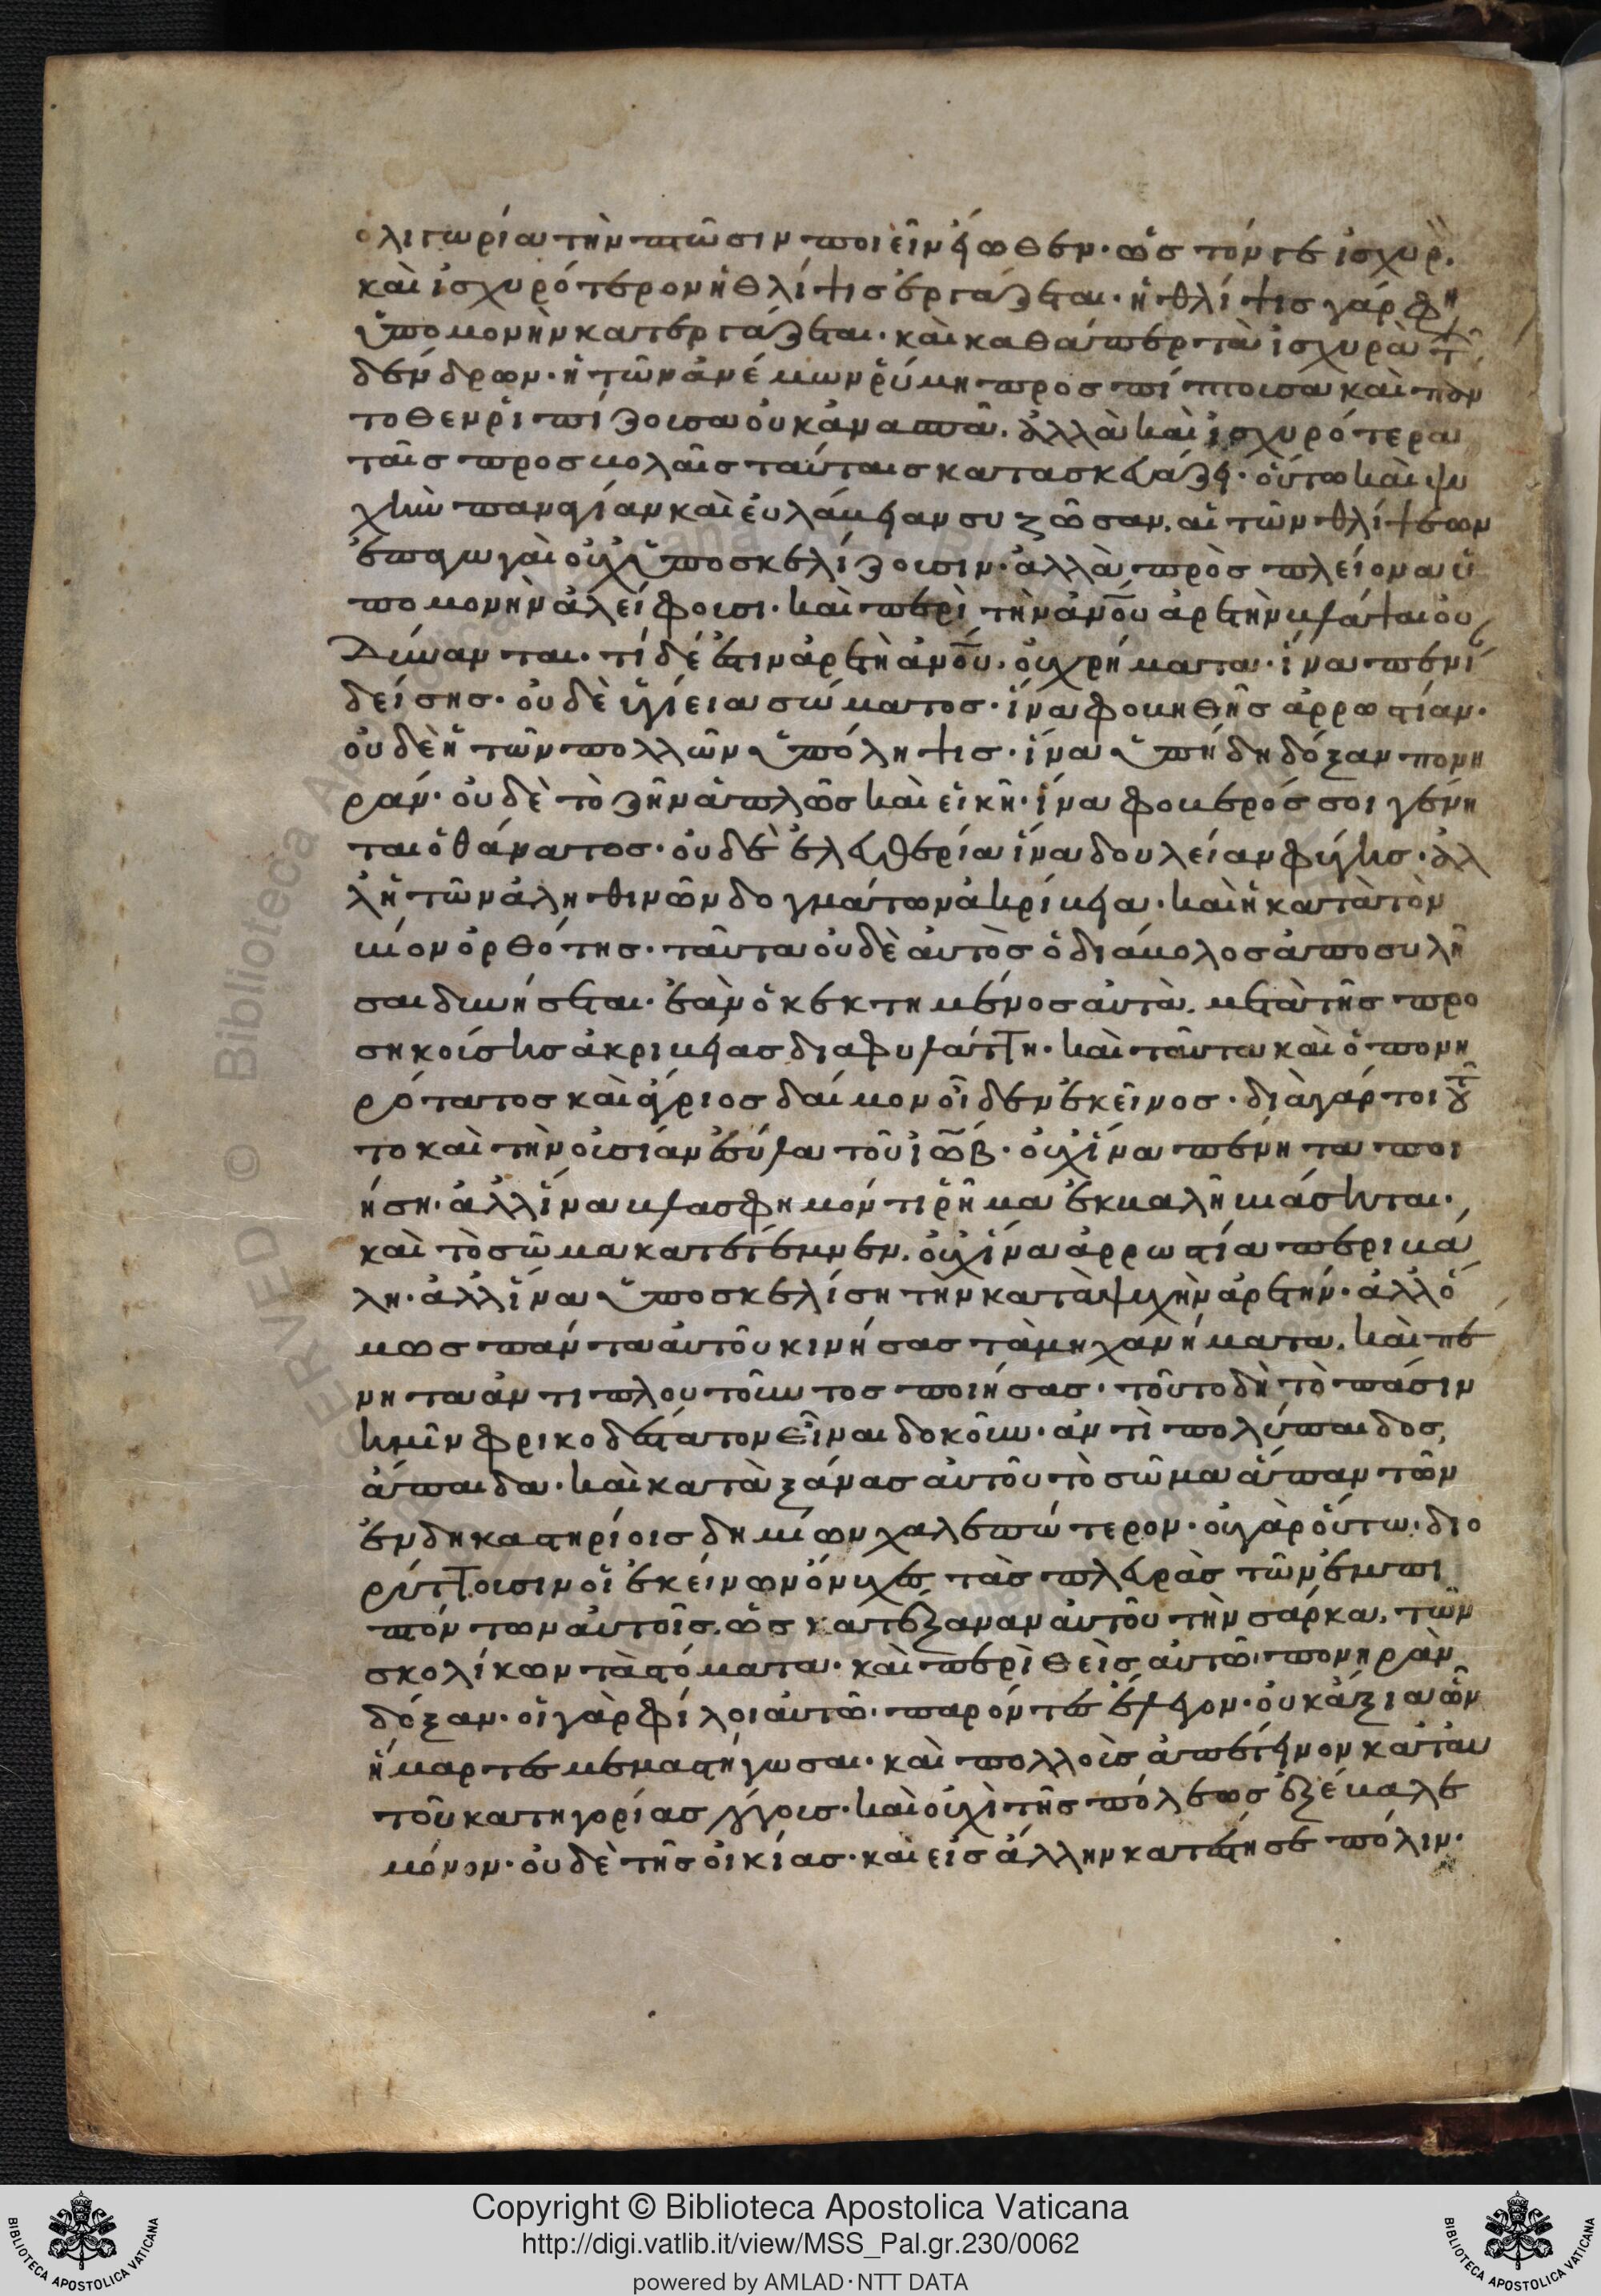 ὀλιγωρία τὴν πτῶσιν ποιεῖν εἴωθεν· ὡς τόν γε ἰσχυρὸν
καὶ ἰσχυρότερον ἡ θλίψις ἐργάζεται· ἡ θλίψις γάρ φη
ὑπομονὴν κατεργάζεται· καὶ καθάπερ τὰ ἰσχυρὰ τῶν
δένδρων· ἡ τῶν ἀνέμων ῥύμη προσπίπτουσα καὶ πάν
τοθεν ῥιπίζουσα οὐκ ἀνασπᾶ. ἀλλὰ καὶ ἰσχυρότερα
ταῖς προσβολαῖς ταύταις κατασκευάζει· οὕτω καὶ ψυ
χὴν ἁγίαν καὶ εὐλάβειαν συζῶσαν. αἱ τῶν θλίψεων
ἐπαγωγαὶ οὐχ ὑποσκελίζουσιν· ἀλλὰ πρὸς πλείονα ὑ
πομονὴν ἀλείφουσι· καὶ περὶ τὴν ἀνου ἀρετὴν βλάψαι οὐ
δύνανται. τί δέ ἐστιν ἀρετὴ ἀνου. οὐ χρήματα· ἵνα πενί
δείσης· οὐδὲ ὑγίεια σώματος· ἵνα φοβηθῆς ἀρρωστίαν·
οὐδὲ ἡ τῶν πολλῶν ὑπόληψις· ἵνα ὑπίδη δόξαν πονη
ράν· οὐδὲ τὸ ζῆν ἁπλῶς καὶ εἰκῆ· ἵνα φοβερός σοι γένη
ται ὁ θάνατος· οὐδὲ ἐλευθερία ἵνα δουλείαν φύγης· ἀλ
λ' ἡ τῶν ἀληθινῶν δογμάτων ἀκρίβεια· καὶ ἡ κατὰ τὸν
βίον ὀρθότης· ταῦτα οὐδὲ αὐτὸς ὁ διάβολος ἀποσυλῆ
σαι δυνήσεται· ἐὰν ὁ κεκτημένος αὐτὰ. μετὰ τῆς προ
σηκούσης ἀκριβείας διαφυλάττη· καὶ ταῦτα καὶ ὁ πονη
ρότατος καὶ ἄγριος δαίμων οἶδεν ἐκεῖνος· διὰ γάρ τοι τοῦ
το καὶ τὴν οὐσίαν ἐσύλα τοῦ ἰὼβ· οὐχ ἵνα πένητα ποι
ήση· ἀλλ' ἵνα βλάσφημόν τι ῥῆμα ἐκβαλεῖν βιάσηται·
καὶ τὸ σῶμα κατέτεμνεν. οὐχ ἵνα ἀρρωστία περιβά
λη· ἀλλ' ἵνα ὑποσκελίση τὴν κατὰ ψυχὴν ἀρετήν· ἀλλ' ὅ
μως πάντα αὐτοῦ κινήσας τὰ μηχανήματα. καὶ πέ
νητα ἀντὶ πλουτοῦντος ποιήσας· τοῦτο δὴ τὸ πᾶσιν
ἡμῖν φρικωδέστατον εἶναι δοκοῦν· ἀντὶ πολύπαιδος,
ἄπαιδα· καὶ καταξάνας αὐτοῦ τὸ σῶμα ἅπαν τῶν
ἐν δικαστηρίοις δημίων χαλεπώτερον· οὐ γὰρ οὕτω· διο
ρύττουσιν οἱ ἐκείνων ὄνυχες τὰς πλευρὰς τῶν ἐμπι
πτόντων αὐτοῖς. ὡς κατέξαναν αὐτοῦ τὴν σάρκα. τῶν
σκολίκων τὰ στόματα· καὶ περιθεὶς αὐτῶ πονηρὰν
δόξαν· οἱ γὰρ φίλοι αὐτῶ παρόντες ἔλεγον· οὐκ ἄξια ὧν
ἥμαρτες μεμαστίγωσαι· καὶ πολλοὺς ἀπέτεινον κατ' αὐ
τοῦ κατηγορίας λόγους· καὶ οὐχὶ τῆς πόλεως ἐξέβαλε
μόνον· οὐδὲ τῆς οἰκίας· καὶ εἰς ἄλλην κατέστησε πόλιν·
Copyright © Biblioteca Apostolica Vaticana
http://digi.vatlib.it/view/MSS_Pal.gr.230/0062
powered by AMLAD·NTT DATA